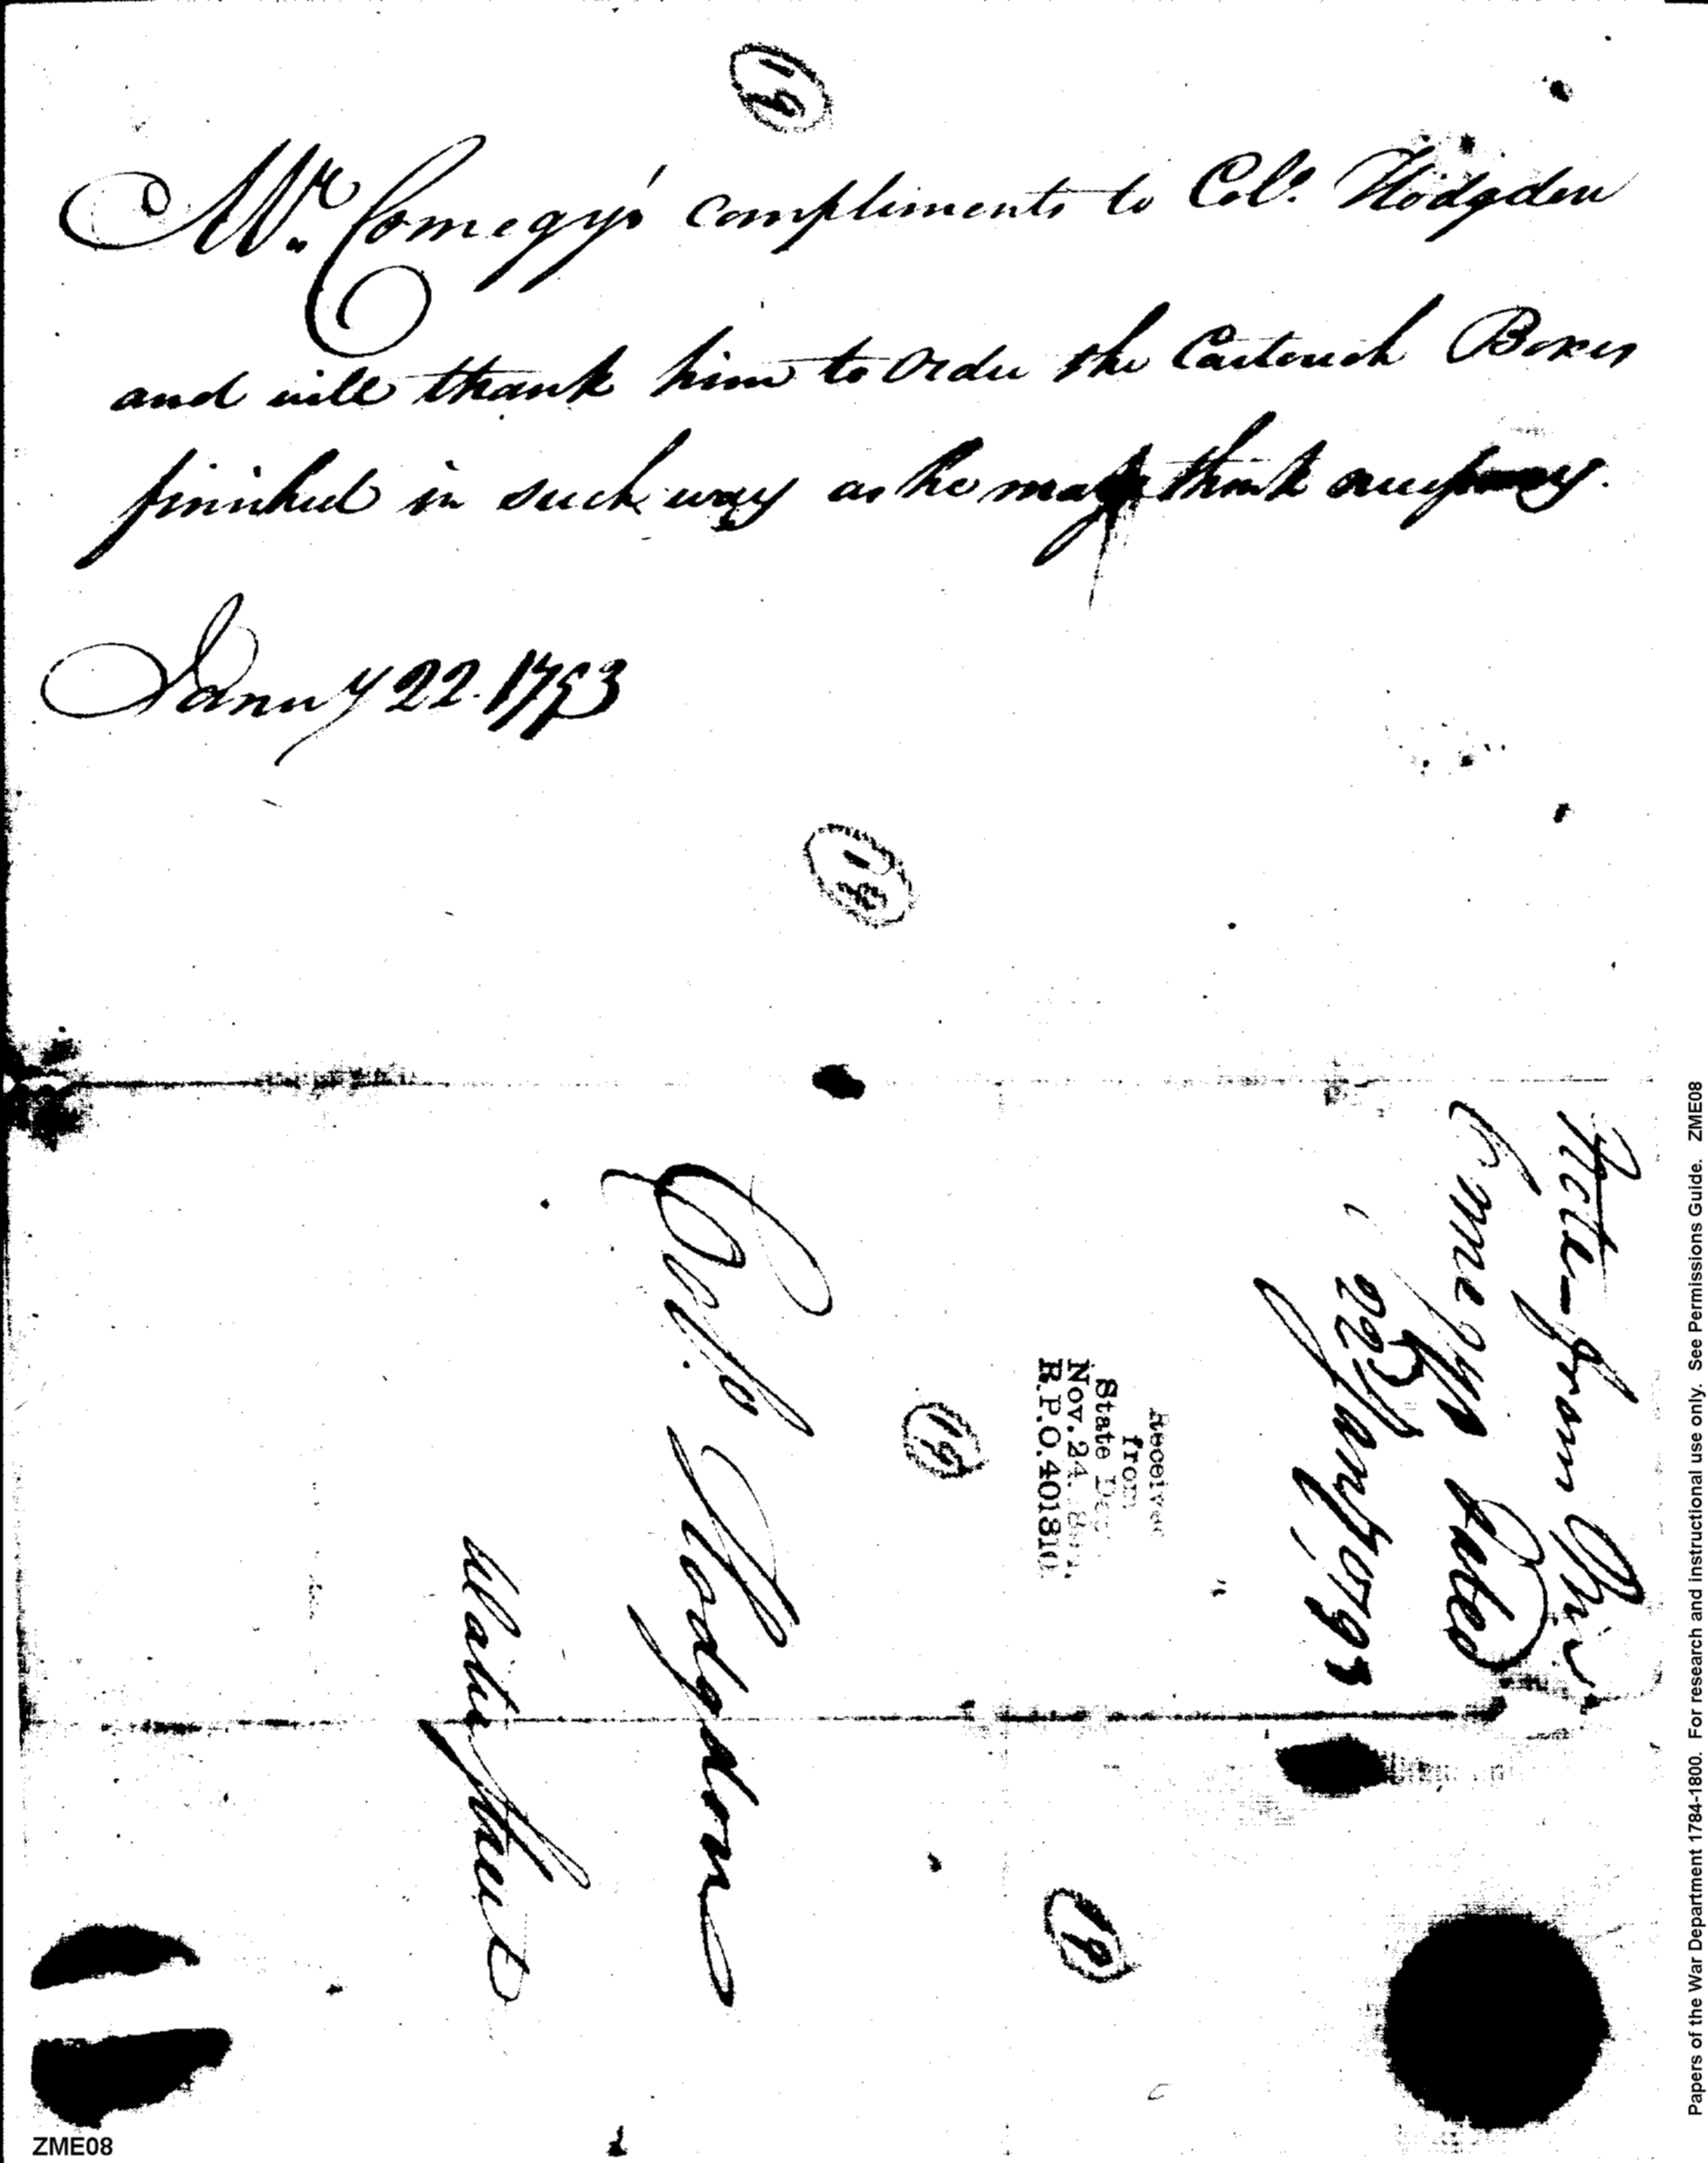 Mr. Comegys' compliments to Colo. Hodgden
and will thank him to order the Cartouch Boxes
finished in such way as he may think necessary.
Janu'y 22. 1793
Note from Mr
Comegys dated
22 Jany 1793
Received
from
State Dep
Nov. 24.
R.P.O. 401810
Colo. Hodgdon
Water Street
18
18
18
18
ZME08
Papers of the War Department 1784-1800. For research and instructional use only. See Permissions Guide. ZME08